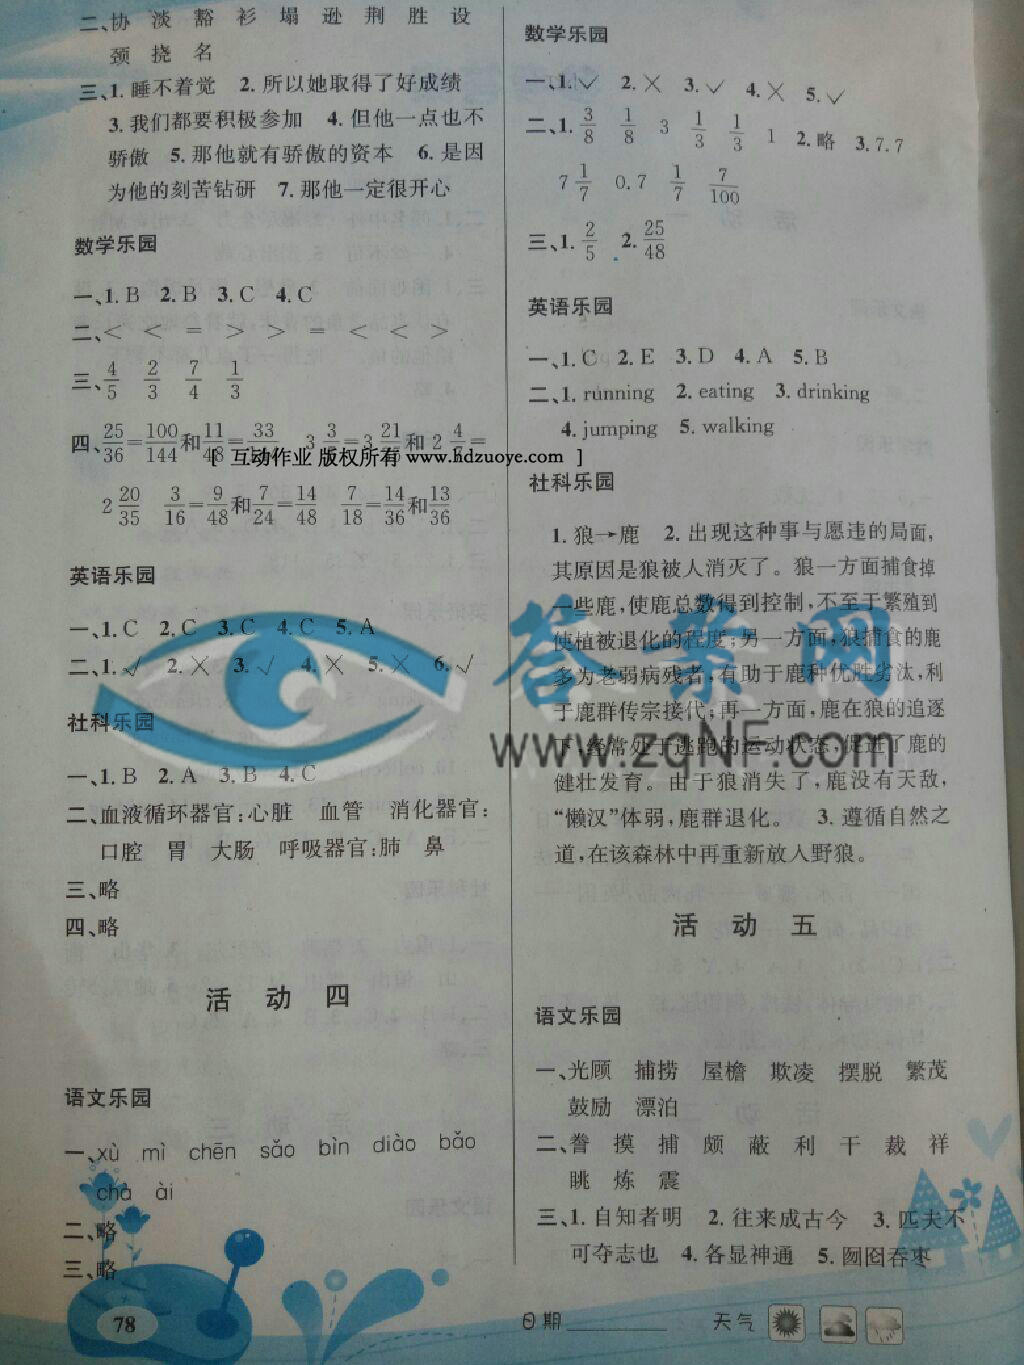 二、协 淡 豁 衫 塌 逊 荆 胜 设
颈 挠 名
三、1. 睡不着觉 2. 所以她取得了好成绩
3. 我们都要积极参加 4. 但他一点也不
骄傲 5. 那他就有骄傲的资本 6. 是因
为他的刻苦钻研 7. 那他一定很开心
数学乐园
一、1. B 2. B 3. C 4. C
二、< < = > > = < < >
三、4/5 2/3 7/4 1/3
四、25/36=100/144和11/48=33/ 3 3/5=3 21/35和2 4/ =
[ 互动作业 版权所有 www.hdzuoye.com ]
2 20/35 3/16=9/48和7/24=14/48 7/18=14/36和13/36
英语乐园
一、1. C 2. C 3. C 4. C 5. A
二、1. √ 2. × 3. √ 4. × 5. × 6. √
社科乐园
一、1. B 2. A 3. B 4. C
二、血液循环器官:心脏 血管 消化器官:
口腔 胃 大肠 呼吸器官:肺 鼻
三、略
四、略
活 动 四
语文乐园
一、xù mì chēn sǎo bìn diào bǎo
chà ài
二、略
三、略
78
数学乐园
一、1. √ 2. × 3. √ 4. × 5. √
二、1. 3/8 1/8 3 1/3 1/3 1 2. 略 3. 7.7
7 1/7 0.7 1/7 7/100
三、1. 2/5 2. 25/48
英语乐园
一、1. C 2. E 3. D 4. A 5. B
二、1. running 2. eating 3. drinking
4. jumping 5. walking
社科乐园
1. 狼→鹿 2. 出现这种事与愿违的局面,
其原因是狼被人消灭了。狼一方面捕食掉
一些鹿,使鹿总数得到控制,不至于繁殖到
使植被退化的程度;另一方面,狼捕食的鹿
多为老弱病残者,有助于鹿种优胜劣汰,利
于鹿群传宗接代;再一方面,鹿在狼的追逐
下,经常处于逃跑的运动状态,促进了鹿的
健壮发育。由于狼消失了,鹿没有天敌,
“懒汉”体弱,鹿群退化。 3. 遵循自然之
道,在该森林中再重新放人野狼。
答案网
www.zqNF.com
活 动 五
语文乐园
一、光顾 捕捞 屋檐 欺凌 摆脱 繁茂
鼓励 漂泊
二、眷 摸 捕 颇 蔽 利 干 裁 祥
眺 炼 震
三、1. 自知者明 2. 往来成古今 3. 匹夫不
可夺志也 4. 各显神通 5. 囫囵吞枣
日期 天气